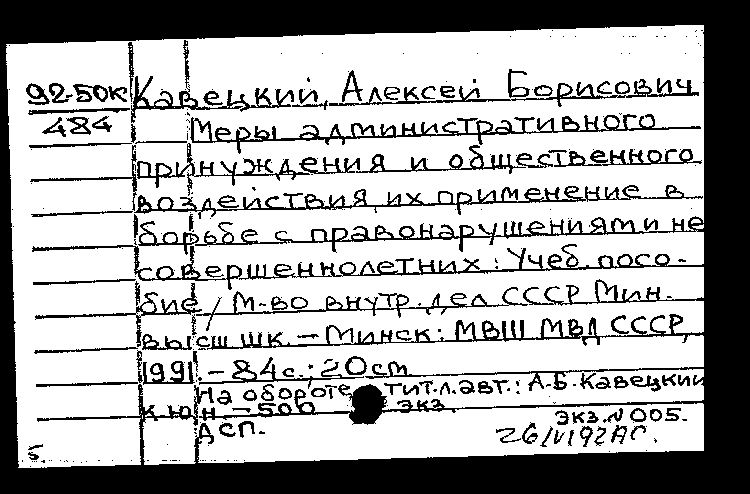 92-50к Кавецкий, Алексей Борисович
484 Меры административного
принуждения и общественного
воздействия, их применение в
борьбе с правонарушениями не
совершеннолетних: Учеб. посо-
бие / М-во внутр. дел СССР Мин.
высш шк. – Минск: МВШ МВД СССР,
1991. – 84 с.; 20 cm
На обороте тит. л. авт.: А.Б. Кавецкий
к ю н. – 500 экз.
ДСП. экз. N 005.
5. 26/VI 92